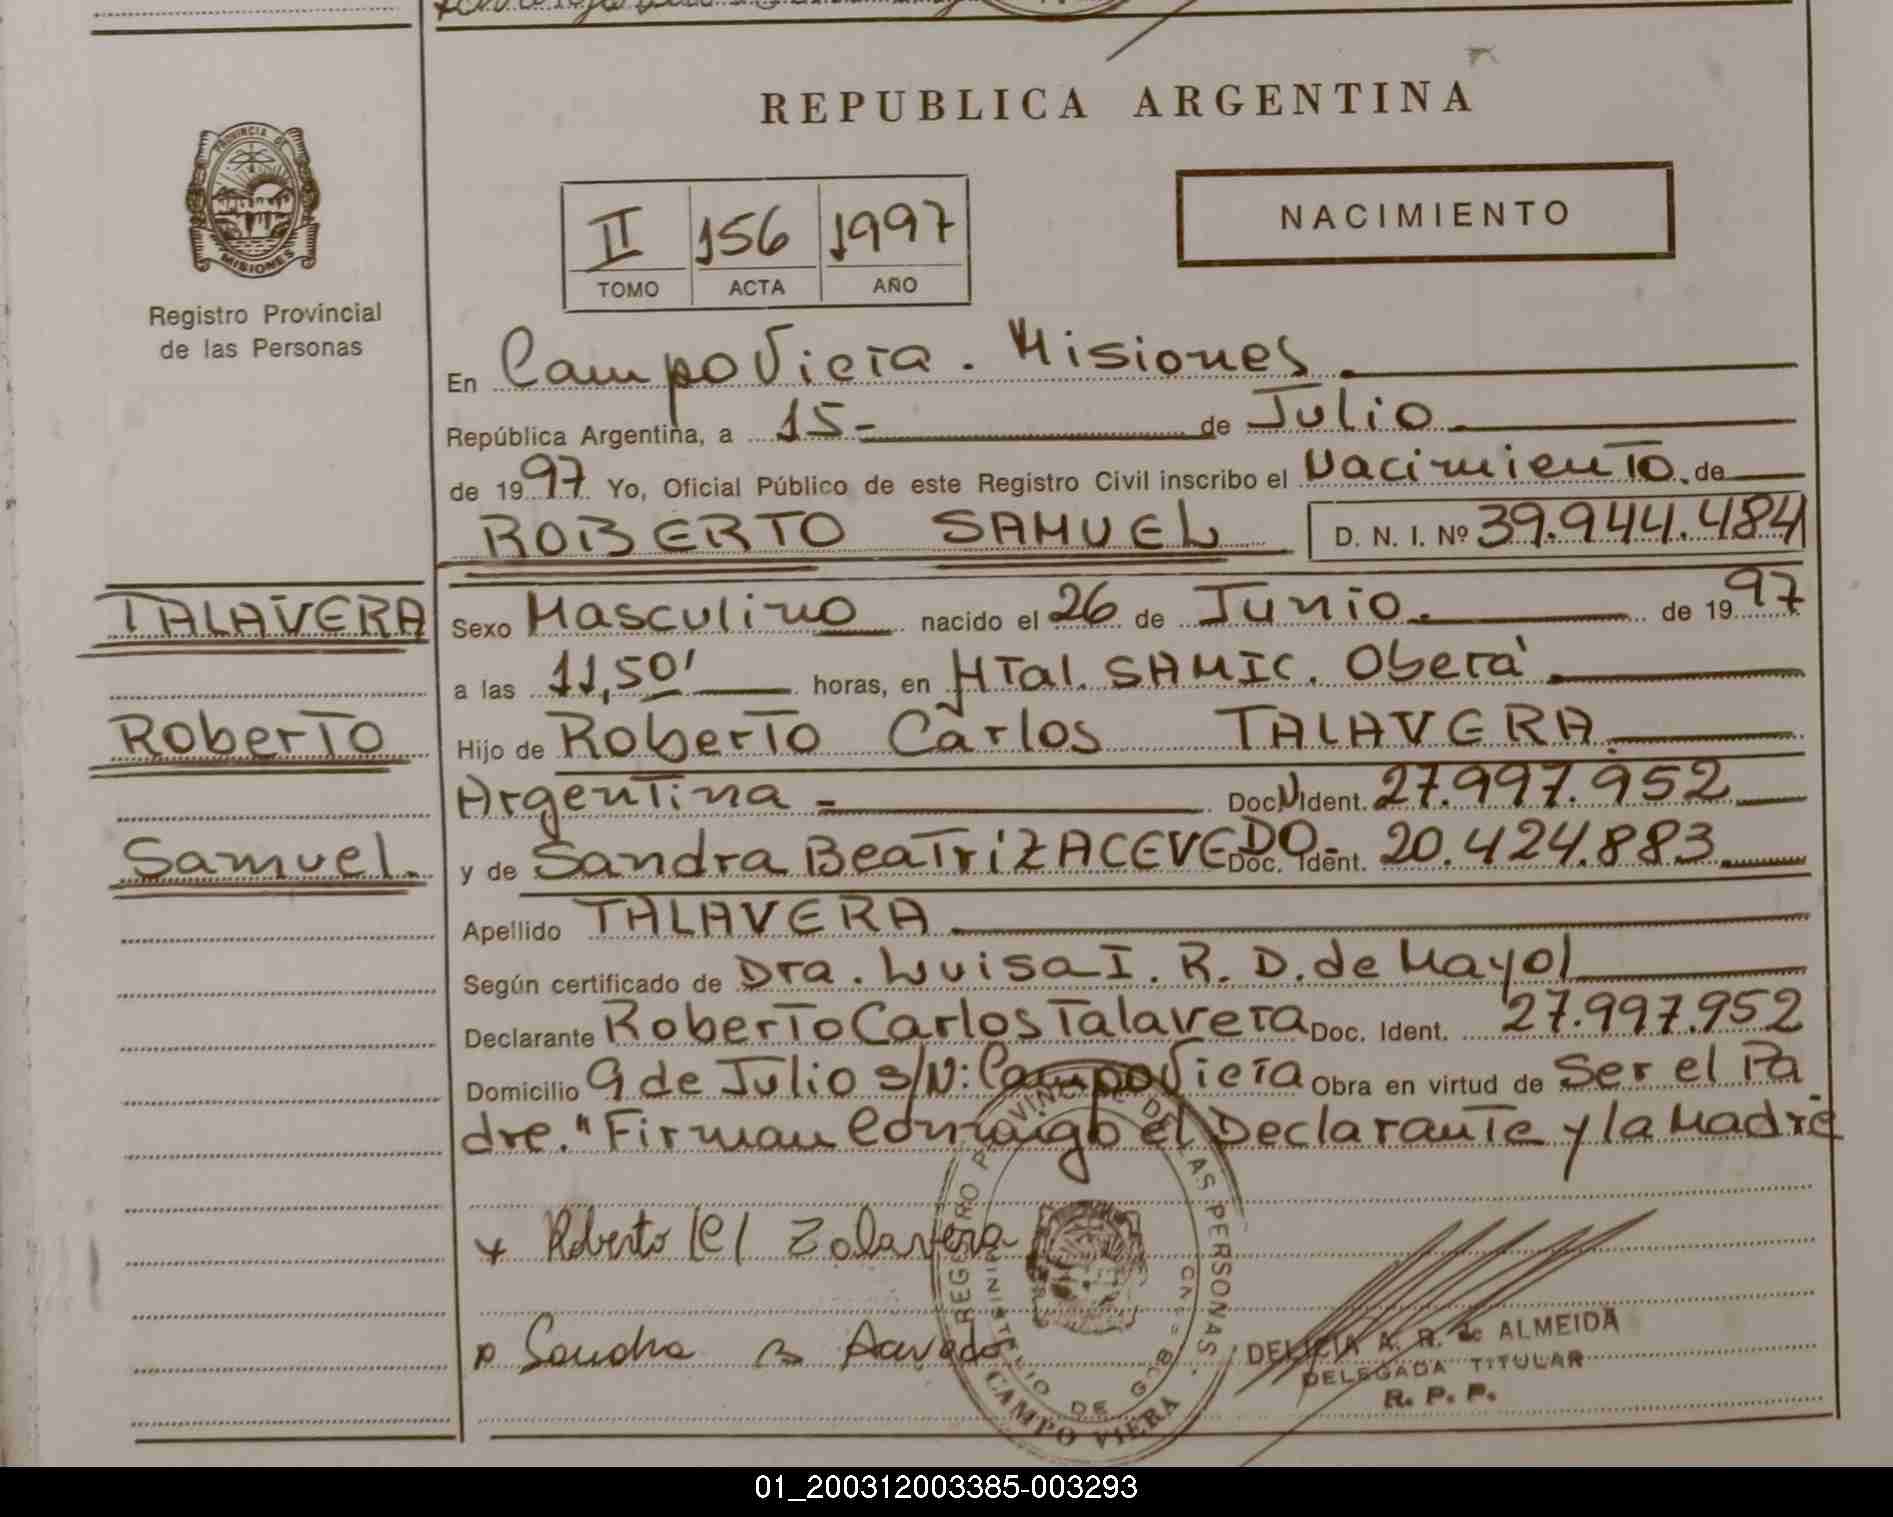 REPUBLICA ARGENTINA
PROVINCIA DE
MISIONES
Registro Provincial
de las Personas
II 156 1997
TOMO ACTA AÑO
NACIMIENTO
En Campo Viera. Misiones.
República Argentina, a 15- de Julio.
de 1997 Yo, Oficial Público de este Registro Civil inscribo el Nacimiento. de
ROBERTO SAMUEL D. N. I. Nº 39.944.484
TALAVERA
Roberto
Samuel.
Sexo Masculino nacido el 26 de Junio. de 1997
a las 11,50' horas, en HTal. SAMIC. Oberá.
Hijo de Roberto Carlos TALAVERA.
Argentina - Doc. N Ident. 27.997.952
y de Sandra Beatriz ACEVEDO- Doc. Ident. 20.424.883.
Apellido TALAVERA
Según certificado de Dra. Luisa I. R. D. de Mayol
Declarante Roberto Carlos Talavera Doc. Ident. 27.997.952
Domicilio 9 de Julio s/N: Campo Viera Obra en virtud de Ser el Pa
dre." Firman Conmigo el Declarante y la Madre
x Roberto C Talavera
Sandra B Acevedo
REGISTRO PROVINCIAL DE LAS PERSONAS
MINISTERIO DE GOB
CAMPO VIERA
DELICIA A. R. de ALMEIDA
DELEGADA TITULAR
R. P. P.
01_200312003385-003293